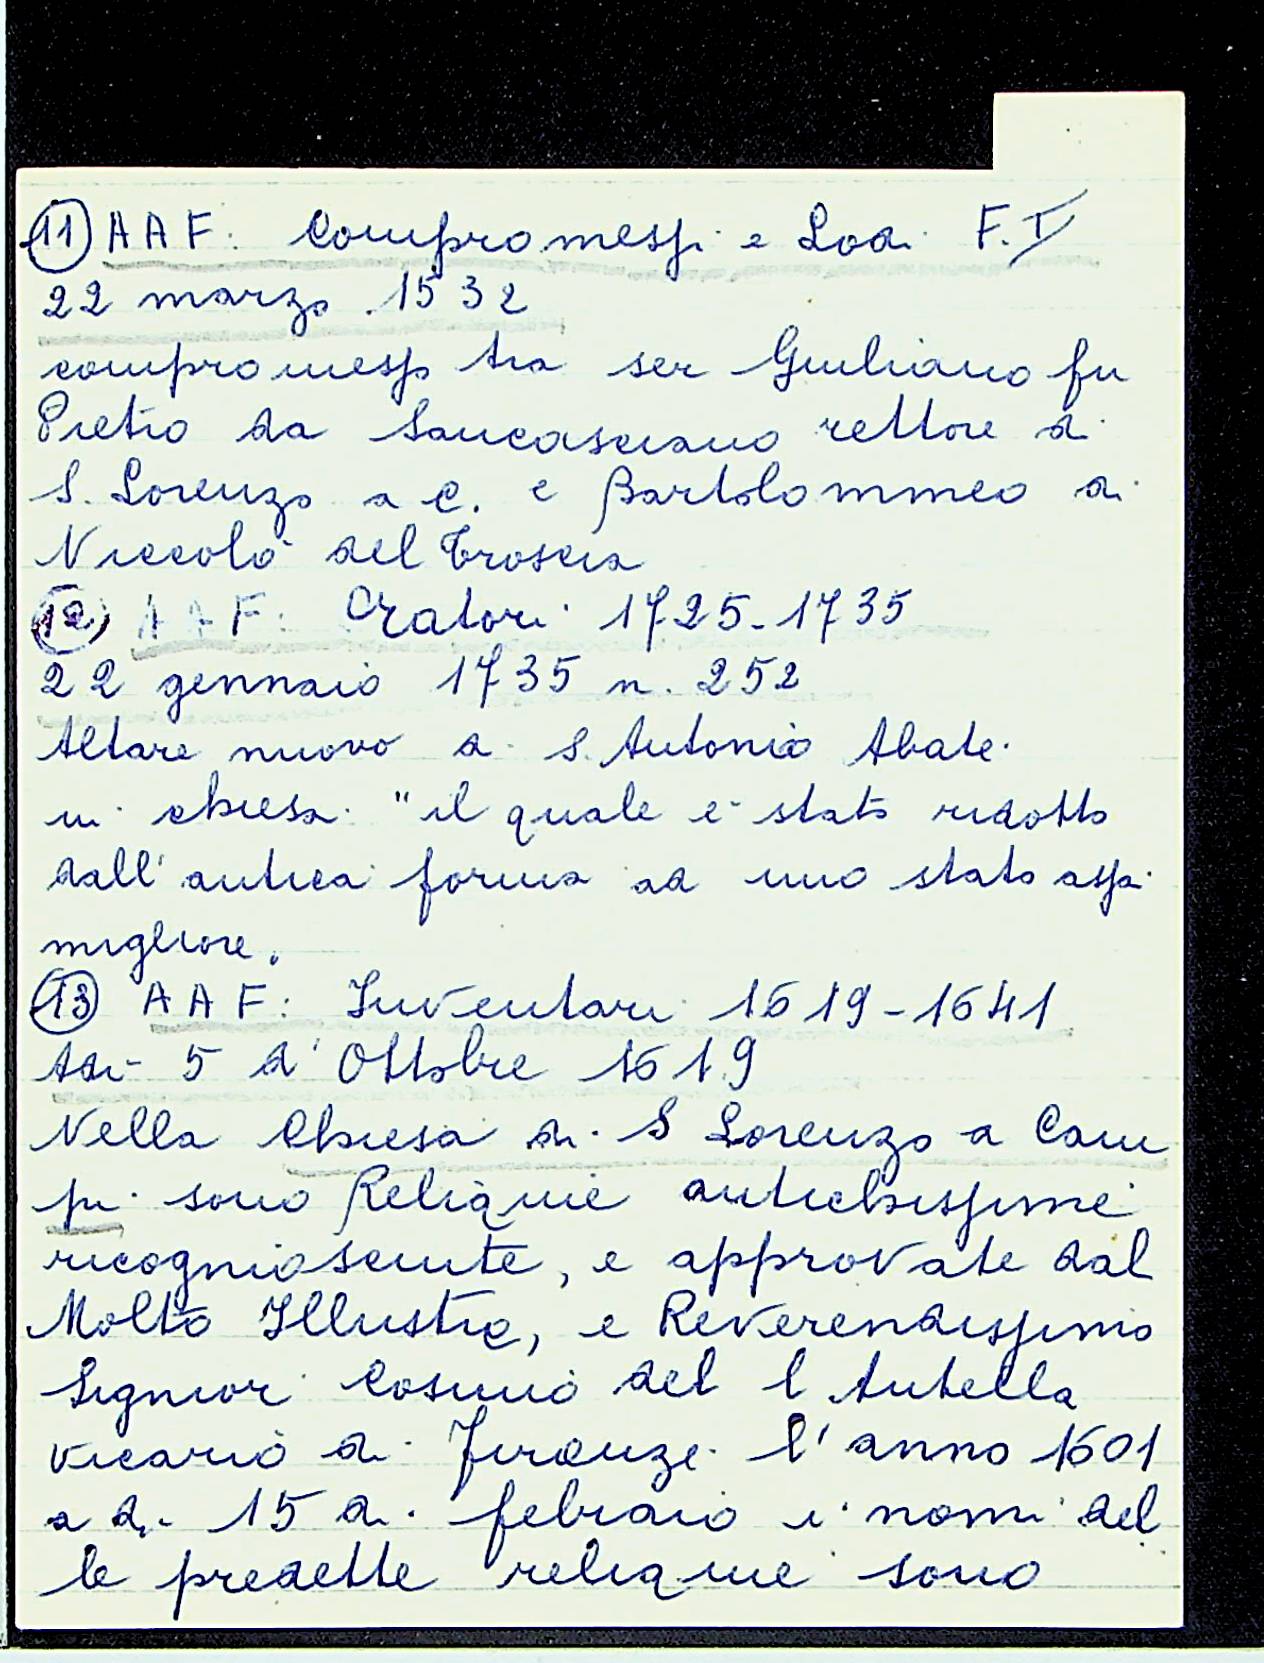 11 A A F: Compromessi e Lodi F.I
22 marzo 1532
compromesso tra ser Giuliano fu
Pietro da Sancasciano rettore di
S. Lorenzo a C. e Bartolommeo di
Niccolò del Troscia
12 A A F: Oratori 1725-1735
22 gennaio 1735 n. 252
Altare nuovo di S. Antonio Abate
in chiesa "il quale è stato ridotto
dall'antica forma ad uno stato assai
migliore.
13 A A F: Inventari 1619-1641
Adì 5 d'Ottobre 1619
Nella Chiesa di S Lorenzo a Cam
pi sono Reliquie antichissime
ricogniosciute, e approvate dal
Molto Illustre, e Reverendissimo
Signior Cosimo del l Antella
vicario di Firenze l'anno 1601
a dì 15 di febraio i nomi del
le predette reliquie sono